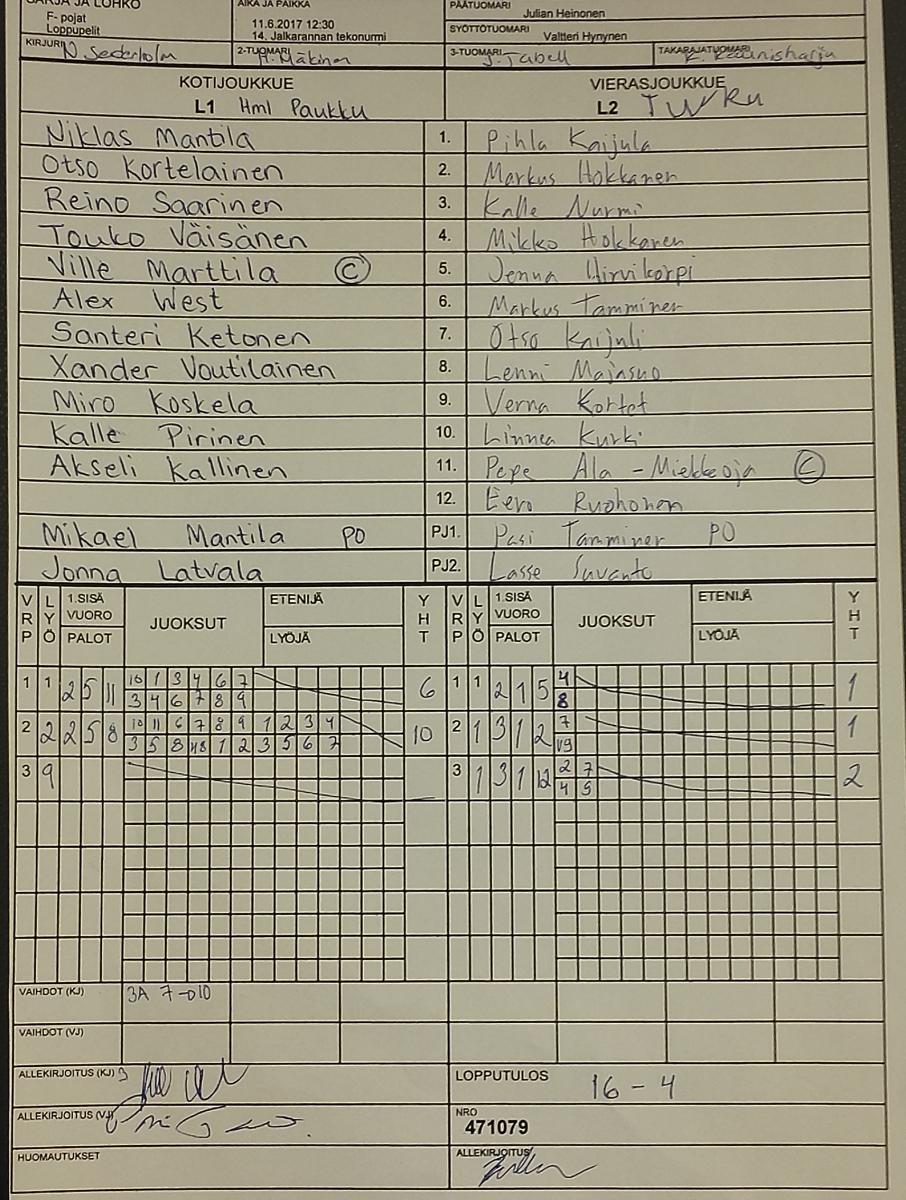 SARJA JA LOHKO
F- pojat
Loppupelit
AIKA JA PAIKKA
11.6.2017 12:30
14. Jalkarannan tekonurmi
PÄÄTUOMARI
Julian Heinonen
SYÖTTÖTUOMARI
Valtteri Hynynen
KIRJURI N. Sederholm
2-TUOMARI H. Mäkinen
3-TUOMARI J. Tabell
TAKARAJATUOMARI K. Kaunisharju
KOTIJOUKKUE
L1 Hml Paukku
VIERASJOUKKUE
L2
Niklas Mantila 1. Pihla Kaijula
Otso Kortelainen 2. Markus Hokkanen
Reino Saarinen 3. Kalle Nurmi
Touko Väisänen 4. Mikko Hokkanen
Ville Marttila C 5. Jenna Hirvikorpi
Alex West 6. Markus Tamminen
Santeri Ketonen 7. Otso Kaijuli
Xander Voutilainen 8. Lenni Majasuo
Miro Koskela 9. Verna Kortet
Kalle Pirinen 10. Linnea Kurki
Akseli Kallinen 11. Pepe Ala-Miekkeoja C
12. Eero Ruohonen
Mikael Mantila PO PJ1. Pasi Tamminen PO
Jonna Latvala PJ2. Lasse Suvanto
VRP LYÖ 1.SISÄ VUORO PALOT JUOKSUT ETENIJÄ LYÖJÄ YHT VRP LYÖ 1.SISÄ VUORO PALOT JUOKSUT ETENIJÄ LYÖJÄ YHT
1 1 2 5 11 10 1 3 4 6 7 6 1 1 2 1 5 4 1
3 4 6 7 8 9 8
2 2 2 5 8 10 11 6 7 8 9 1 2 3 4 10 2 1 3 1 2 7 1
3 5 8 1 2 3 5 6 7 V9
3 9 3 1 3 1 12 2 7 2
4 5
VAIHDOT (KJ) 3A 7-010
VAIHDOT (VJ)
ALLEKIRJOITUS (KJ)
LOPPUTULOS 16 - 4
ALLEKIRJOITUS (VJ)
NRO
471079
HUOMAUTUKSET
ALLEKIRJOITUS